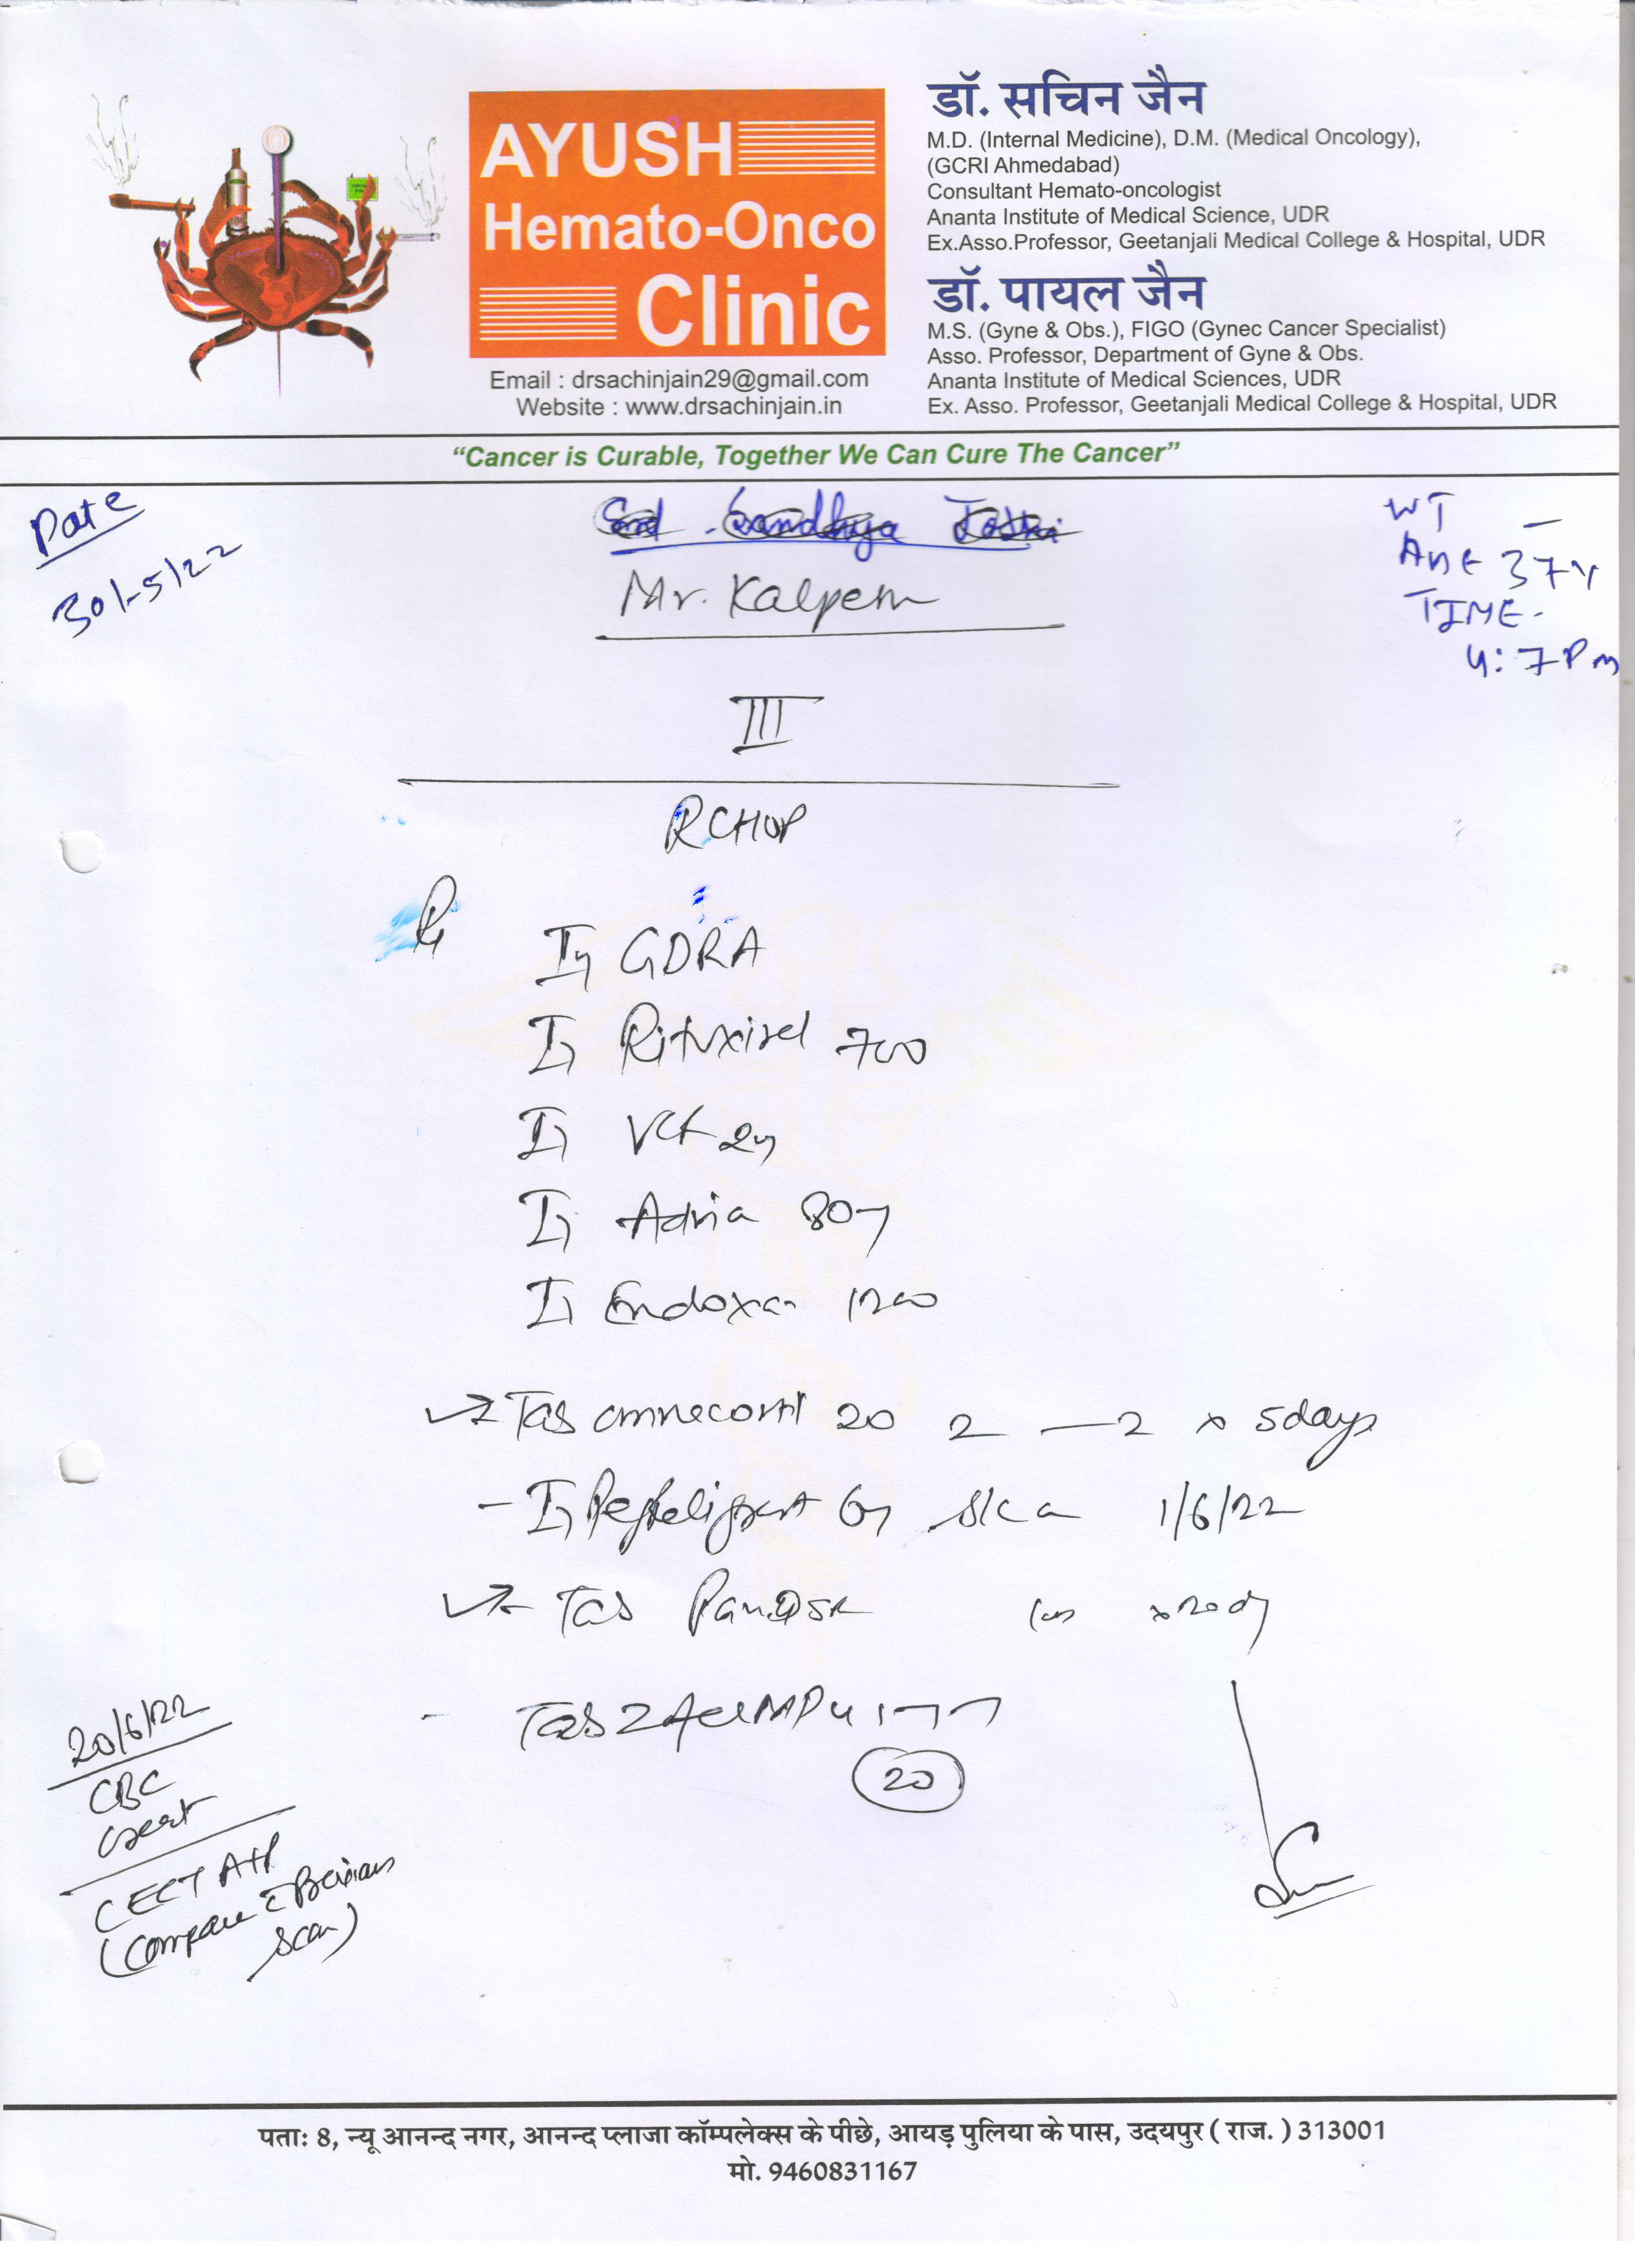 AYUSH
Hemato-Onco
Clinic
Email : drsachinjain29@gmail.com
Website : www.drsachinjain.in
डॉ. सचिन जैन
M.D. (Internal Medicine), D.M. (Medical Oncology),
(GCRI Ahmedabad)
Consultant Hemato-oncologist
Ananta Institute of Medical Science, UDR
Ex.Asso.Professor, Geetanjali Medical College & Hospital, UDR
डॉ. पायल जैन
M.S. (Gyne & Obs.), FIGO (Gynec Cancer Specialist)
Asso. Professor, Department of Gyne & Obs.
Ananta Institute of Medical Sciences, UDR
Ex. Asso. Professor, Geetanjali Medical College & Hospital, UDR
“Cancer is Curable, Together We Can Cure The Cancer”
Date
30/-5/22
Mr. Kalpem
WT –
AGE 37Y
TIME-
4:7 Pm
III
RCHOP
Rx
Inj GDRA
Inj 700
Inj 2mg
Inj Adria 80mg
Inj Endoxan 1200
→ Tab omnecortil 20 2 — 2 x 5days
- Inj 6mg s/c on 1/6/22
→ Tab x 20 d
- Tab
20
20/6/22
CBC
creat
CECT A+P
(Compare c Previous
scan)
पता: 8, न्यू आनन्द नगर, आनन्द प्लाजा कॉम्पलेक्स के पीछे, आयड़ पुलिया के पास, उदयपुर ( राज. ) 313001
मो. 9460831167